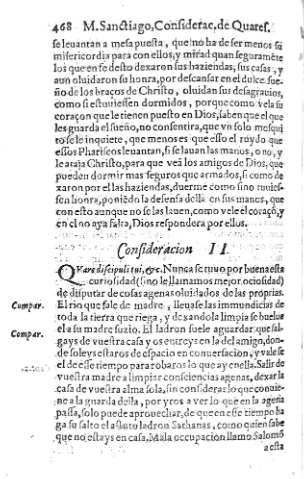 468 M. Sanctiago, Considerac, de Quares.
se leuantan a mesa puesta, que no ha de ser menos su
misericordia para con ellos, y mirad quan seguramẽte
los que en se desto dexaron sus haziendas, sus casas, y
aun oluidaron su honra, por descansar en el dulce sue-
ño de los braços de Christo, oluidan sus desagrauios,
como si estuuiessen dormidos, porque como vela su
coraçon que le tienen puesto en Dios, saben que el que
les guarda el sueño, no consentira, que vn solo mosqui
to se le inquiete, que menos es que esso el ruydo que
essos Phariseos leuantan, si se lauan las manos, o no, y
le ataja Christo, para que veã los amigos de Dios, que
pueden dormir mas seguros que armados, si como de
xaron por el las haziendas, duerme como sino tuuies-
sen honra, poniẽdo la defensa della en sus manos, que
con esto aunque no se las lauen, como vele el coraçõ, y
en el no aya falta, Dios respondera por ellos.
Consideracion II
QVare discipuli tui, &c. Nunca se tuuo por buena esta
curiosidad (sino le llamamos mejor ociosidad)
de disputar de cosas agenas oluidados de las proprias.
Compar. El rio que sale de madre, lleua se las immundicias de
toda la tierra que riega, y dexandola limpia se buelue
el a su madre suzio. El ladron suele aguardar que sal-
Compar. gays de vuestra casa y os entreys en la del amigo, don-
de soleys estaros de espacio en conuersacion, y vale se
el de esse tiempo para robaros lo que ay en ella. Salir de
vuestra madre a limpiar consciencias agenas, dexar la
casa de vuestra alma sola, sin considerar lo que conuie-
ne a la guarda della, por yros a ver lo que en la agena
passa, solo puede aprouechar, de que en esse tiempo ha
ga su salto el astuto ladron Sathanas, como quien sabe
que no estays en casa, Mala occupacion llamo Salomõ
a esta